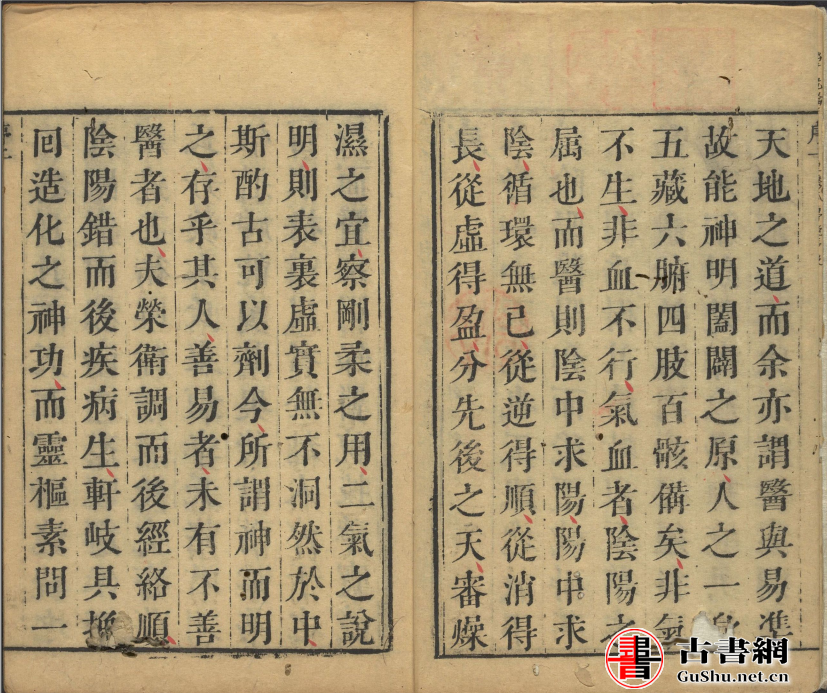 天地之道而余亦謂醫與易準
故能神明闔闢之原人之一身
五藏六腑四肢百骸備矣非氣
不生非血不行氣血者陰陽之
屬也而醫則陰中求陽陽中求
陰循環無已從逆得順從消得
長從虛得盈分先後之天審燥
濕之宜察剛柔之用二氣之說
明則表裏虛實無不洞然於中
斯酌古可以劑今所謂神而明
之存乎其人善易者未有不善
醫者也夫榮衛調而後經絡順
陰陽錯而後疾病生軒岐具挽
回造化之神功而靈樞素問一
古書網
GuShu.net.cn